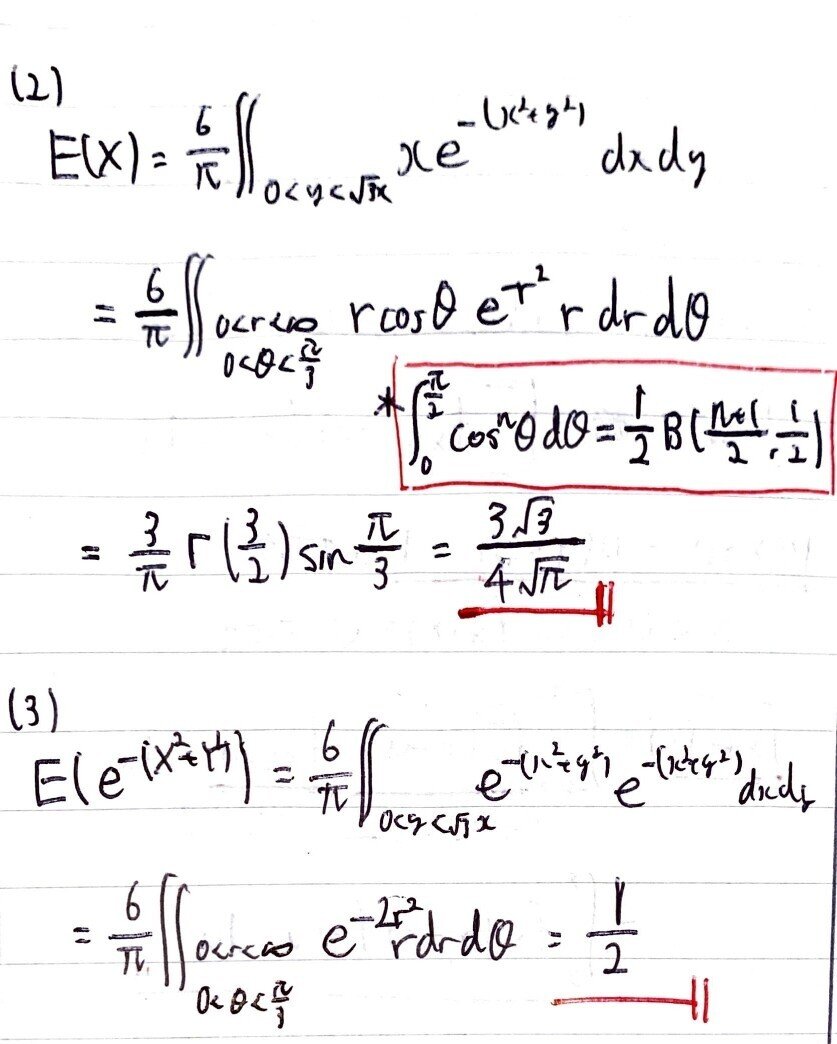 (2)
E(X) = 6/π ∬_{0<y<√3x} x e^{-(x²+y²)} dx dy
= 6/π ∬_{0<r<∞, 0<θ<π/3} r cosθ e^{-r²} r dr dθ
* ∫_0^{π/2} cosⁿθ dθ = 1/2 B(n+1/2, 1/2)
= 3/π Γ(3/2) sin π/3 = 3√3/4√π
(3)
E(e^{-(X²+Y²)}) = 6/π ∬_{0<y<√3x} e^{-(x²+y²)} e^{-(x²+y²)} dx dy
= 6/π ∬_{0<r<∞, 0<θ<π/3} e^{-2r²} r dr dθ = 1/2